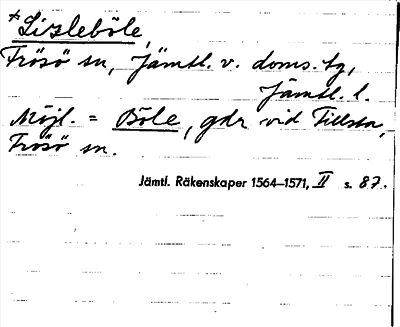 *Lisleböle,
Frösö sn, Jämtl. v. doms. tg,
Jämtl. l.
Möjl. = Böle, gdr vid Tillsta,
Frösö sn.
Jämtl. Räkenskaper 1564–1571, II s. 87.